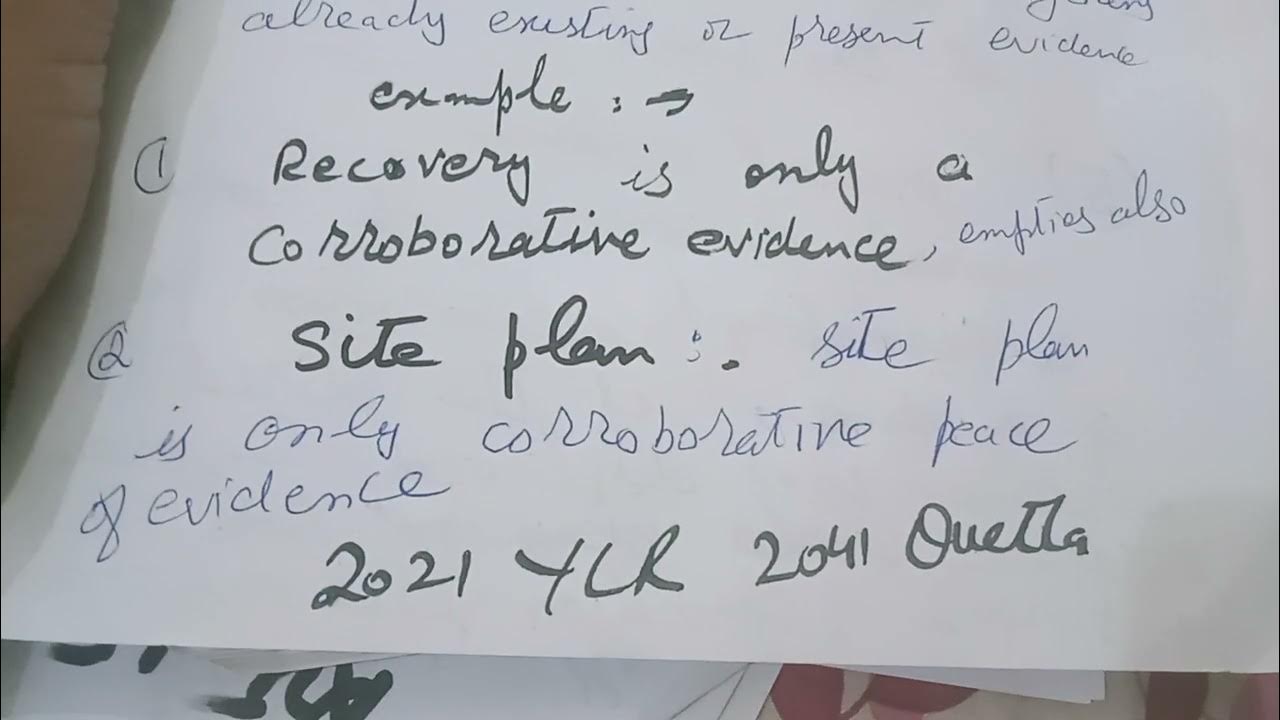 already existing or present evidence
example : →
① Recovery is only a
corroborative evidence, empties also
② Site plan :. site plan
is only corroborative peace
of evidence
2021 YLR 2041 Quetta